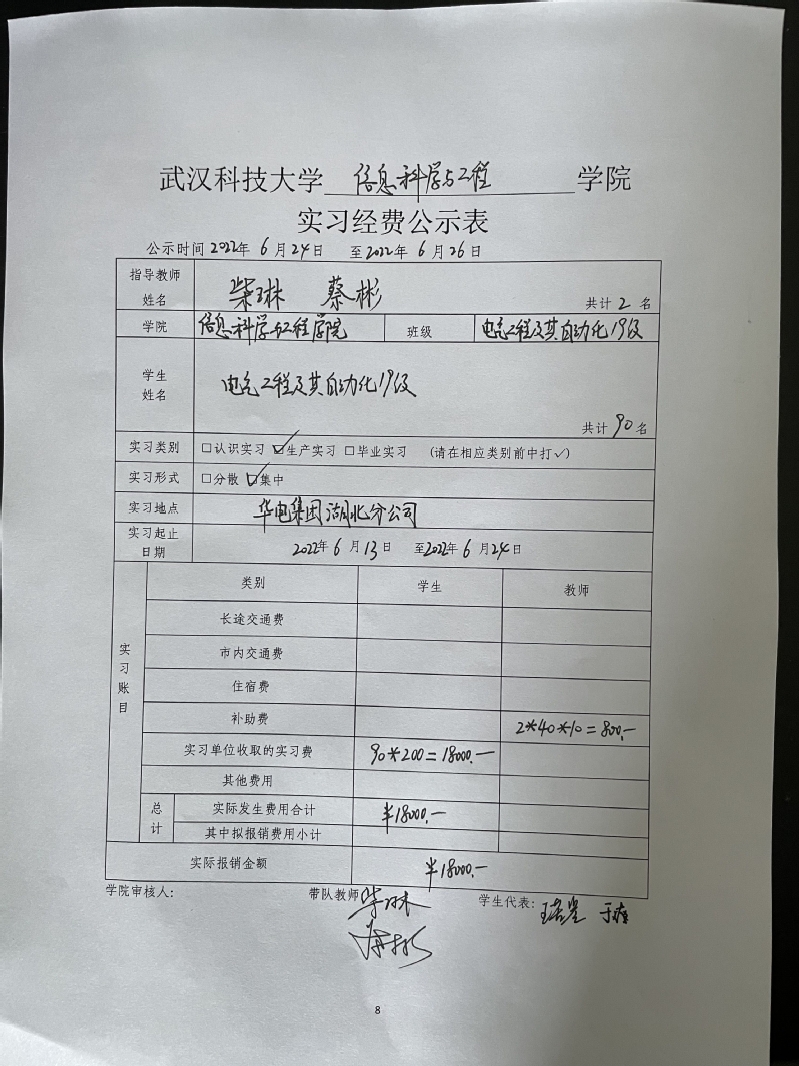 武汉科技大学 信息科学与工程 学院
实习经费公示表
公示时间 2022年 6 月 24 日 至2022年 6 月 26 日
指导教师
姓名 柴琳 蔡彬 共计 2 名
学院 信息科学与工程学院 班级 电气工程及其自动化19级
学生
姓名 电气工程及其自动化19级
共计 90 名
实习类别 □认识实习 ☑生产实习 □毕业实习 (请在相应类别前中打✓)
实习形式 □分散 ☑集中
实习地点 华电集团湖北分公司
实习起止
日期 2022年 6 月 13 日 至2022年 6 月 24 日
实习账目
类别 学生 教师
长途交通费
市内交通费
住宿费
补助费 2*40*10=800.—
实习单位收取的实习费 90*200=18000.—
其他费用
总计
实际发生费用合计 ¥18000.—
其中拟报销费用小计
实际报销金额 ¥18000.—
学院审核人: 带队教师 柴琳 学生代表:
蔡彬
8